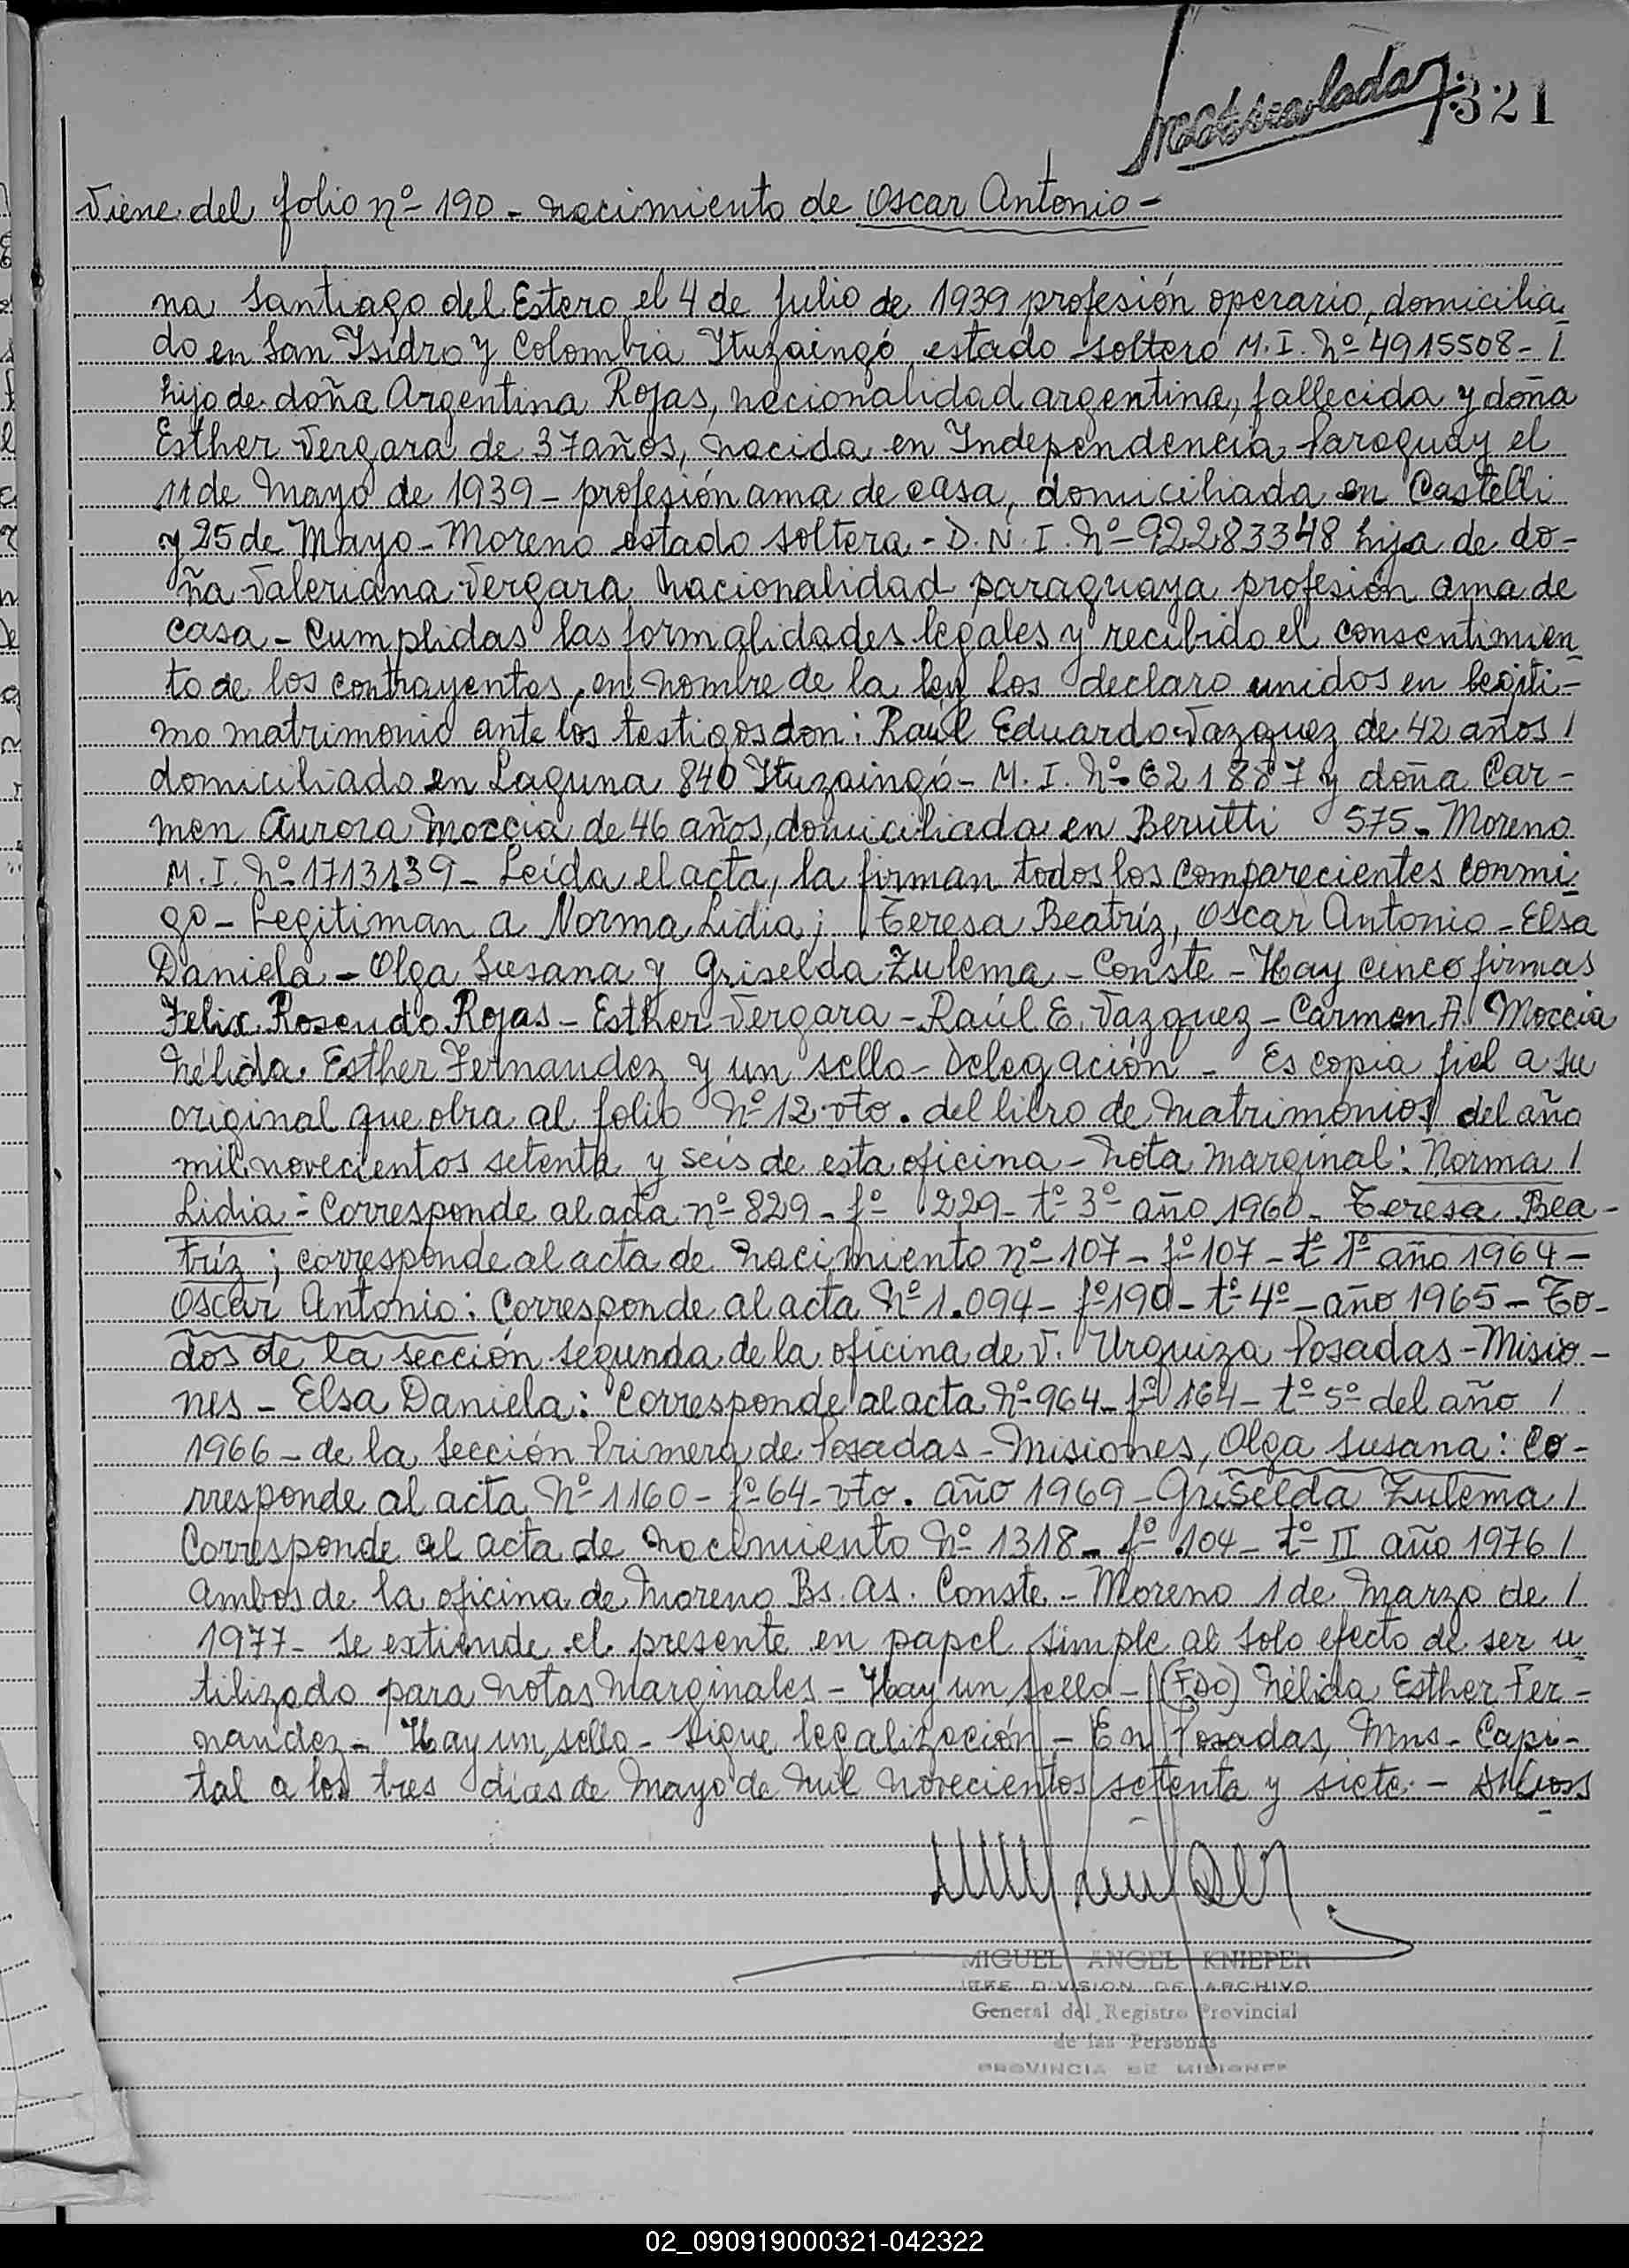 321
Viene del folio nº 190 - nacimiento de Oscar Antonio -
na Santiago del Estero, el 4 de Julio de 1939 profesión operario, domicilia
do en San Isidro y Colombia Ituzaingó estado soltero M. I. Nº 4915508 - /
hijo de doña Argentina Rojas, nacionalidad argentina, fallecida y doña
Esther Vergara de 37 años, nacida en Independencia Paraguay el
11 de Mayo de 1939 - profesión ama de casa, domiciliada en Castelli
y 25 de Mayo - Moreno estado soltera - D. N. I. Nº 92283348 hija de do-
ña Valeriana Vergara nacionalidad paraguaya profesión ama de
casa - Cumplidas las formalidades legales y recibido el consentimien
to de los contrayentes, en nombre de la ley los declaro unidos en legíti-
mo matrimonio ante los testigos don: Raúl Eduardo Vazquez de 42 años /
domiciliado en Laguna 840 Ituzaingó - M. I. Nº 621887 y doña Car-
men Aurora Moccia de 46 años, domiciliada en Berutti 575 - Moreno
M. I. Nº 1713139 - Leída el acta, la firman todos los comparecientes conmi
go - Legitiman a Norma Lidia; Teresa Beatríz, Oscar Antonio - Elsa
Daniela - Olga Susana y Griselda Zulema - Conste - Hay cinco firmas
Felix Rosendo Rojas - Esther Vergara - Raúl E. Vazquez - Carmen A. Moccia
Nélida Esther Fernandez y un sello - Delegación - Es copia fiel a su
original que obra al folio Nº 12 vto. del libro de Matrimonios del año
mil novecientos setenta y seis de esta oficina - Nota Marginal: Norma /
Lidia - Corresponde al acta nº 829 - fº 229 - tº 3º año 1960 - Teresa Bea-
tríz; corresponde al acta de nacimiento nº 107 - fº 107 - tº 1º año 1964 -
Oscar Antonio: Corresponde al acta Nº 1.094 - fº 190 - tº 4º - año 1965 - To-
dos de la sección segunda de la oficina de V. Urquiza Posadas - Misio-
nes - Elsa Daniela: Corresponde al acta Nº 964 - fº 164 - tº 5º del año /
1966 - de la Sección Primera de Posadas - Misiones, Olga Susana: Co-
rresponde al acta Nº 1160 - fº 64 - vto. año 1969 - Griselda Zulema /
Corresponde al acta de nacimiento Nº 1318 - fº 104 - tº II año 1976 /
Ambos de la oficina de Moreno Bs. As. Conste - Moreno 1 de Marzo de /
1977 - se extiende el presente en papel simple al solo efecto de ser u
tilizado para Notas Marginales - Hay un sello - (FDO) Nélida Esther Fer-
nandez - Hay un sello - Sigue legalización - En Posadas, Mns - Capi-
tal a los tres días de Mayo de mil novecientos setenta y siete -
MIGUEL ANGEL KNIEPER
JEFE DIVISION DE ARCHIVO
General del Registro Provincial
de las Personas
PROVINCIA DE MISIONES
02_090919000321-042322